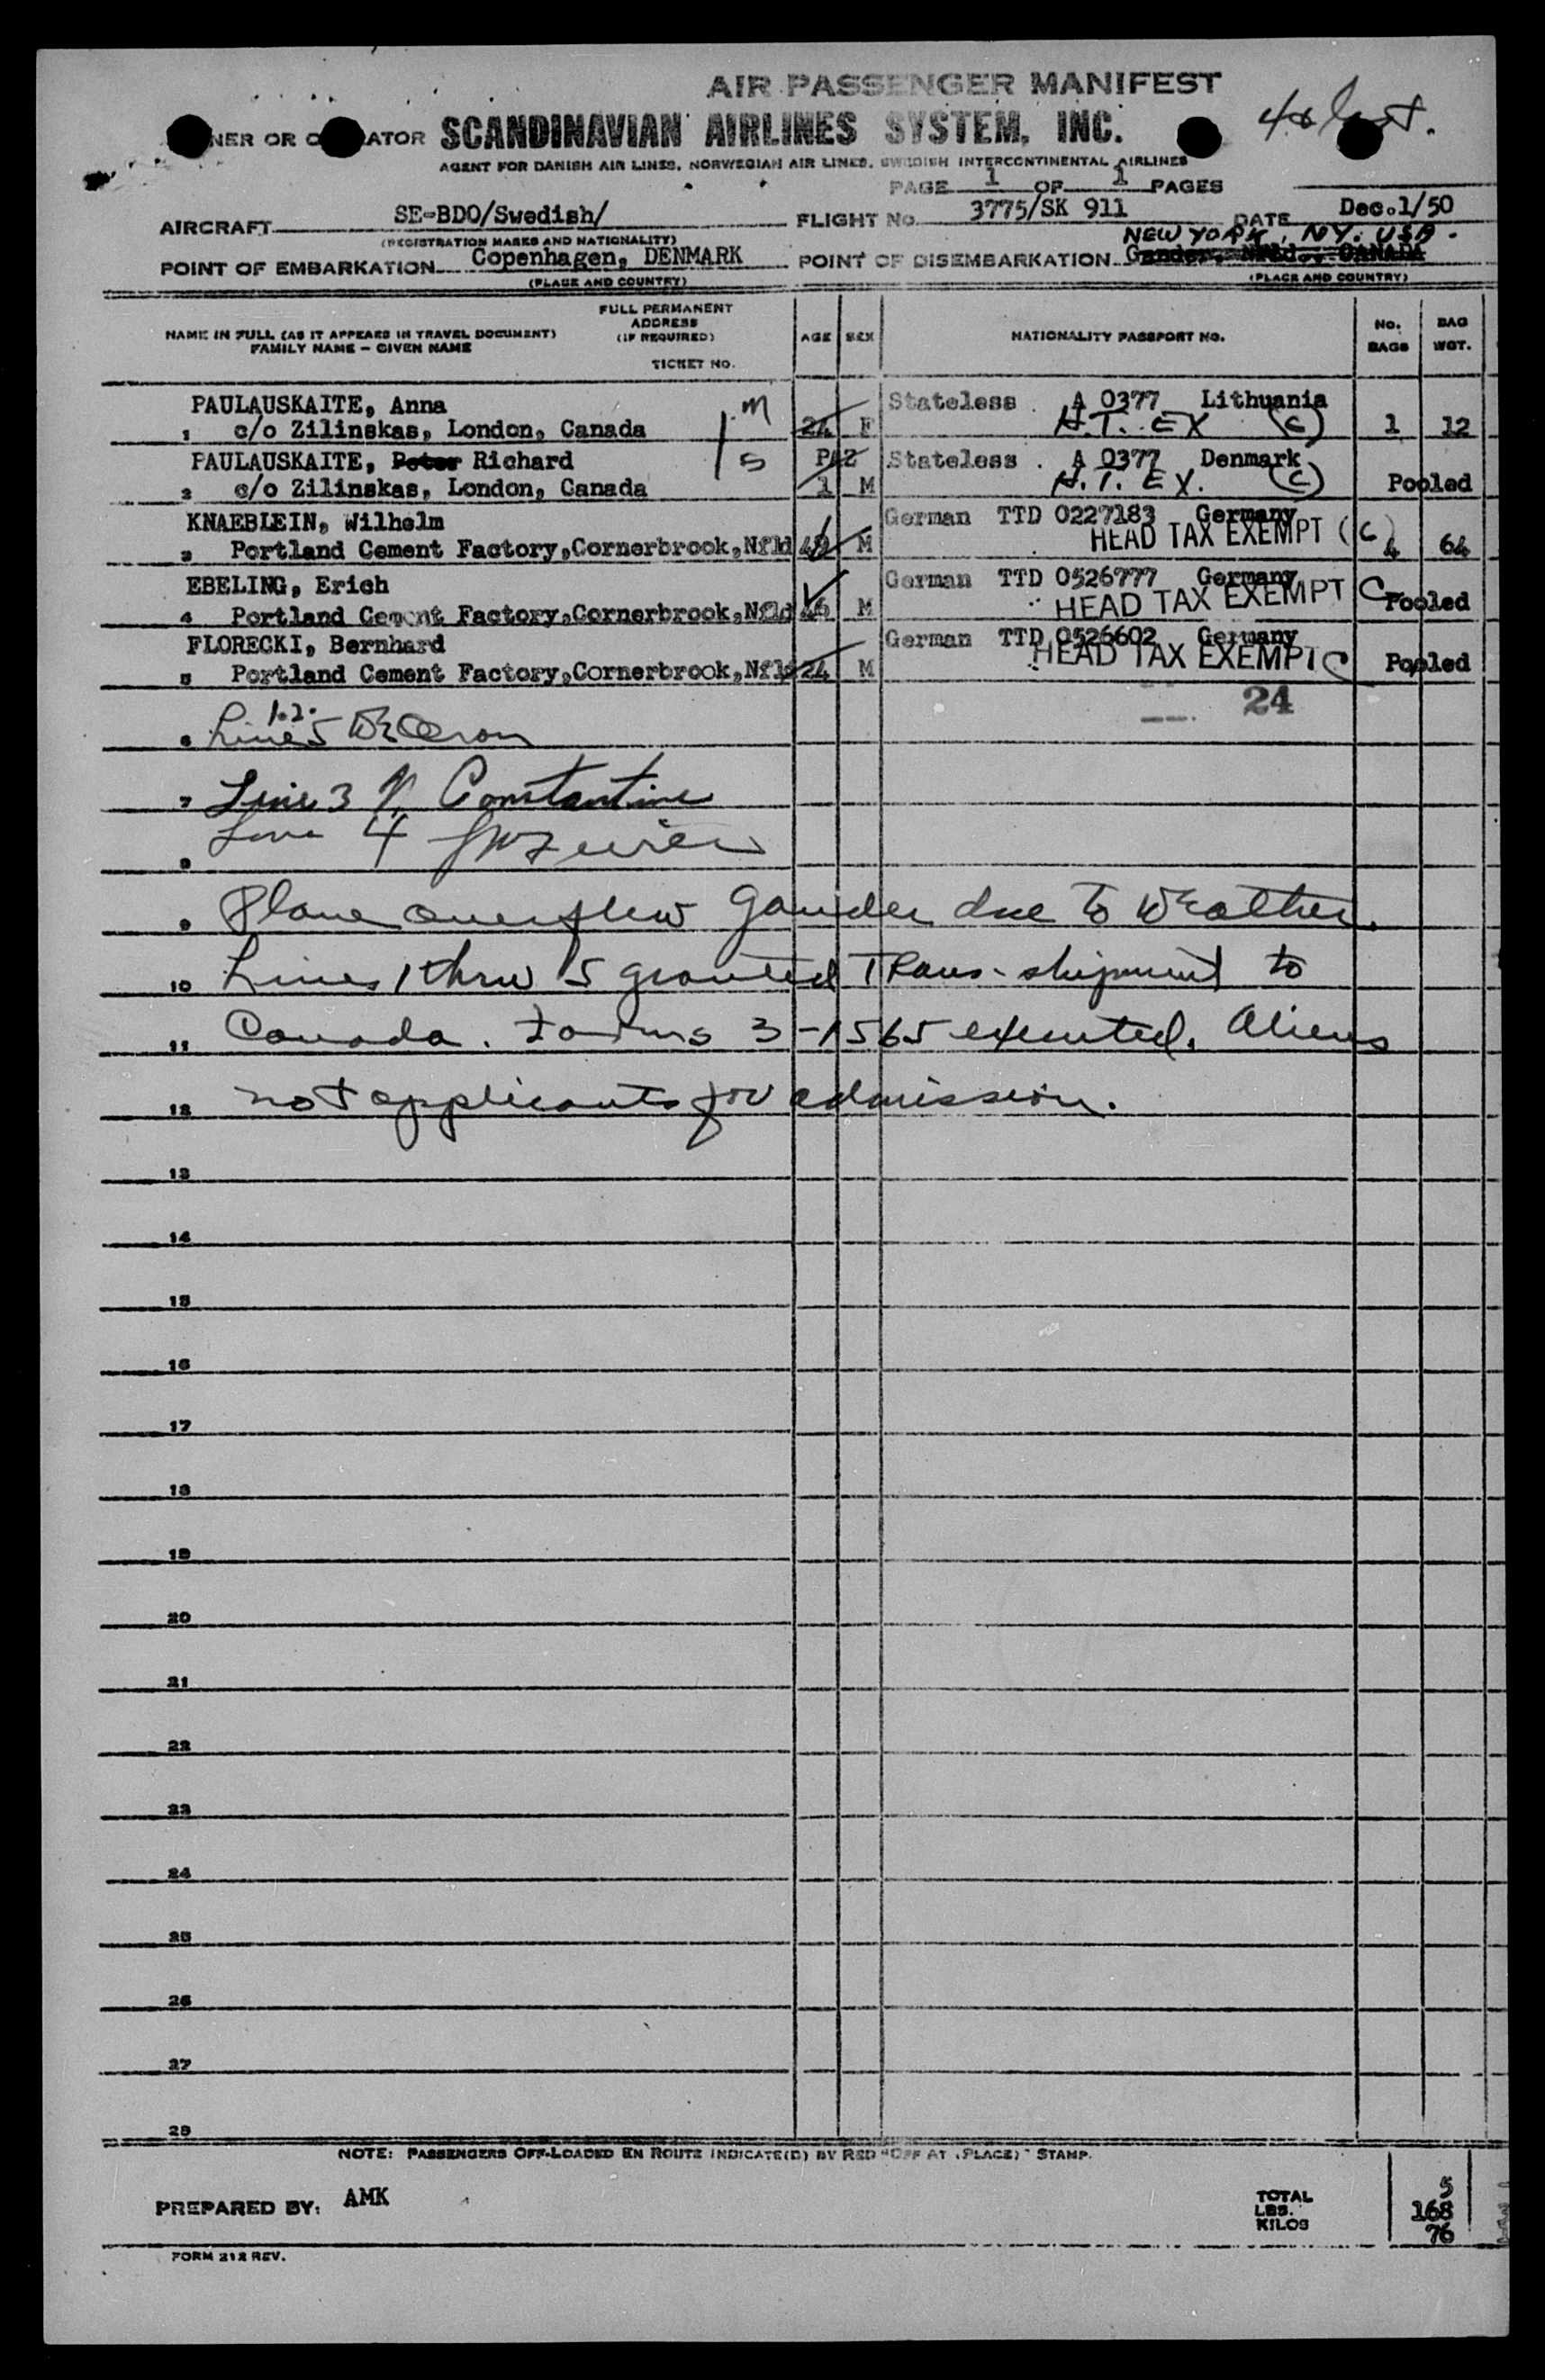 AIR PASSENGER MANIFEST
NER OR ATOR SCANDINAVIAN AIRLINES SYSTEM, INC.
AGENT FOR DANISH AIR LINES, NORWEGIAN AIR LINES, SWEDISH INTERCONTINENTAL AIRLINES
PAGE 1 OF 1 PAGES
AIRCRAFT SE-BDO/Swedish/ FLIGHT No. 3775/SK 911 DATE Dec.1/50
(REGISTRATION MARKS AND NATIONALITY) NEW YORK, N.Y. USA.
POINT OF EMBARKATION Copenhagen, DENMARK POINT OF DISEMBARKATION Gander, Nfld., CANADA
(PLACE AND COUNTRY) (PLACE AND COUNTRY)
NAME IN FULL (AS IT APPEARS IN TRAVEL DOCUMENT) FAMILY NAME – GIVEN NAME FULL PERMANENT ADDRESS (IF REQUIRED) TICKET NO. AGE SEX NATIONALITY PASSPORT NO. NO. BAGS BAG WGT.
PAULAUSKAITE, Anna M Stateless A 0377 Lithuania
1 c/o Zilinskas, London, Canada 24 F H.T. EX (C) 1 12
PAULAUSKAITE, Peter Richard S Stateless A 0377 Denmark
2 c/o Zilinskas, London, Canada 1 M H.T. EX. (C) Pooled
KNAEBLEIN, Wilhelm German TTD 0227183 Germany
3 Portland Cement Factory,Cornerbrook,Nfld M HEAD TAX EXEMPT (C) 4 64
EBELING, Erich German TTD 0526777 Germany
4 Portland Cement Factory,Cornerbrook,Nfld M HEAD TAX EXEMPT C Pooled
FLORECKI, Bernhard German TTD 0526602 Germany
5 Portland Cement Factory,Cornerbrook,Nfld 24 M HEAD TAX EXEMPT C Pooled
24
1.2.
6 Lines 5
7 Line 3 Constantine
8 Line 4
9 Plane overflew Gander due to Weather.
10 Lines 1 thru 5 granted Trans-shipment to
11 Canada. Forms 3-1565 executed. Aliens
12 not applicants for admission.
13
14
15
16
17
18
19
20
21
22
23
24
25
26
27
28
NOTE: PASSENGERS OFF-LOADED EN ROUTE INDICATE(D) BY RED "OFF AT (PLACE)" STAMP.
PREPARED BY: AMK
TOTAL 5
LBS. 168
KILOS 76
FORM 212 REV.